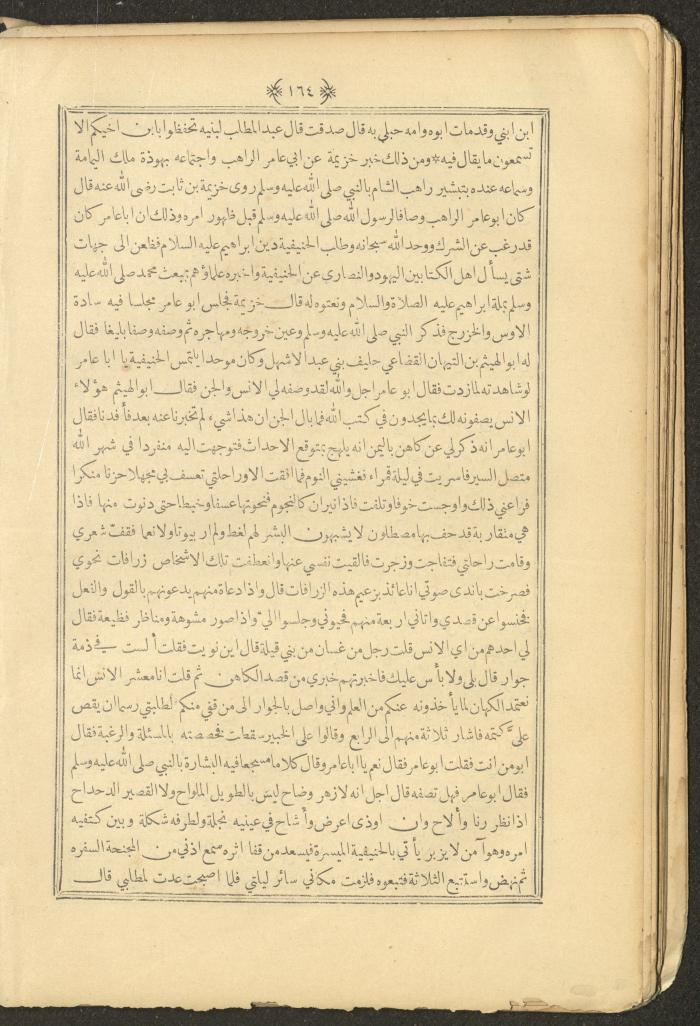 ١٦٤
ابن ابني وقدمات ابوه وامه حبلى به قال صدقت قال عبدالمطلب لبنيه تحفظوا بابن اخيكم الا
تسمعون مايقال فيه * ومن ذلك خبر خزيمة عن ابي عامر الراهب واجتماعه بهوذة ملك اليمامة
وسماعه عنده بتبشير راهب الشام بالنبي صلى الله عليه وسلم روى خزيمة بن ثابت رضى الله عنه قال
كان ابوعامر الراهب وصافا لرسول الله صلى الله عليه وسلم قبل ظهور امره وذلك ان اباعامر كان
قدرغب عن الشرك ووحد الله سبحانه وطلب الحنيفية دين ابراهيم عليه السلام فظعن الى جهات
شتى يسأل اهل الكتابين اليهود والنصارى عن الحنيفية واخبره علماؤهم ببعث محمد صلى الله عليه
وسلم بملة ابراهيم عليه الصلاة والسلام ونعتوه له قال خزيمة فجلس ابو عامر مجلسا فيه سادة
الاوس والخزرج فذكر النبي صلى الله عليه وسلم وعين خروجه ومهاجره ثم وصفه وصفا بليغا فقال
له ابوالهيثم بن التيهان القضاعي حليف بني عبد الاشهل وكان موحدا يلتمس الحنيفية يا ابا عامر
لوشاهدته لمازدت فقال ابو عامر اجل والله لقد وصفه لي الانس والجن فقال ابوالهيثم هؤلاء
الانس يصفونه لك بمايجدون في كتب الله فمابال الجن ان هذا شيء لم تخبرنا عنه بعد فأفدنا فقال
ابوعامر انه ذكرلي عن كاهن باليمن انه يلهج بمتوقع الاحداث فتوجهت اليه منفردا في شهر الله
متصل السير فاسريت في ليلة قمراء نغشيني النوم فما افقت الا وراحلتي تعسف بي مجهلا حزنا منكرا
فراعني ذلك واوجست خوفا وتلفت فاذا نيران كالنجوم فنحوتها عسفا وخبطا حتى دنوت منها فاذا
هي متقاربة قد حف بها مصطلون لا يشبهون البشر لهم لغط ولم ار بيوتا ولا نعما فقفت شعري
وقامت راحلتي فتفاجت وزجرت فالقيت نفسي عنها وانعطفت تلك الاشخاص زرافات نحوي
فصرخت باندى صوتي انا عائذ بزعيم هذه الزرافات قال واذا دعاة منهم يدعونهم بالقول والفعل
فخنسوا عن قصدي واتاني اربعة منهم فحيوني وجلسوا اليّ واذا صور مشوهة ومناظر فظيعة فقال
لي احدهم من اي الانس قلت رجل من غسان من بني قيلة قال اين نويت فقلت ألست في ذمة
جوار قال بلى ولا بأس عليك فاخبرتهم خبري من قصد الكاهن ثم قلت وانا معشر الانس انما
نعتمد الكهان لما يأخذونه عنكم من العلم واني واصل بالجوار الى من قفي منكم لطلبتي رسما ان يقص
عليّ كتمه فاشار ثلاثة منهم الى الرابع وقالوا على الخبير سقطت فخصصته بالمسئلة والرغبة فقال
ابومن انت فقلت ابوعامر فقال نعم يا اباعامر وقال كلاما مسجعا فيه البشارة بالنبي صلى الله عليه وسلم
فقال ابوعامر فهل تصفه قال اجل انه لازهر وضاح ليس بالطويل الملواح ولا القصير الدحداح
اذا نظر رنا وألاح وان اوذى اعرض وأشاح في عينيه نجلة ولطرفه شكلة وبين كتفيه
امره وهو آمن لا يزبر يأتي بالحنيفية الميسرة فيسعد من قفا اثره سمع اذني من المجنحة السفره
ثم نهض واستتبع الثلاثة فتبعوه فلزمت مكاني سائر ليلتي فلما اصبحت عدت لمطلبي قال